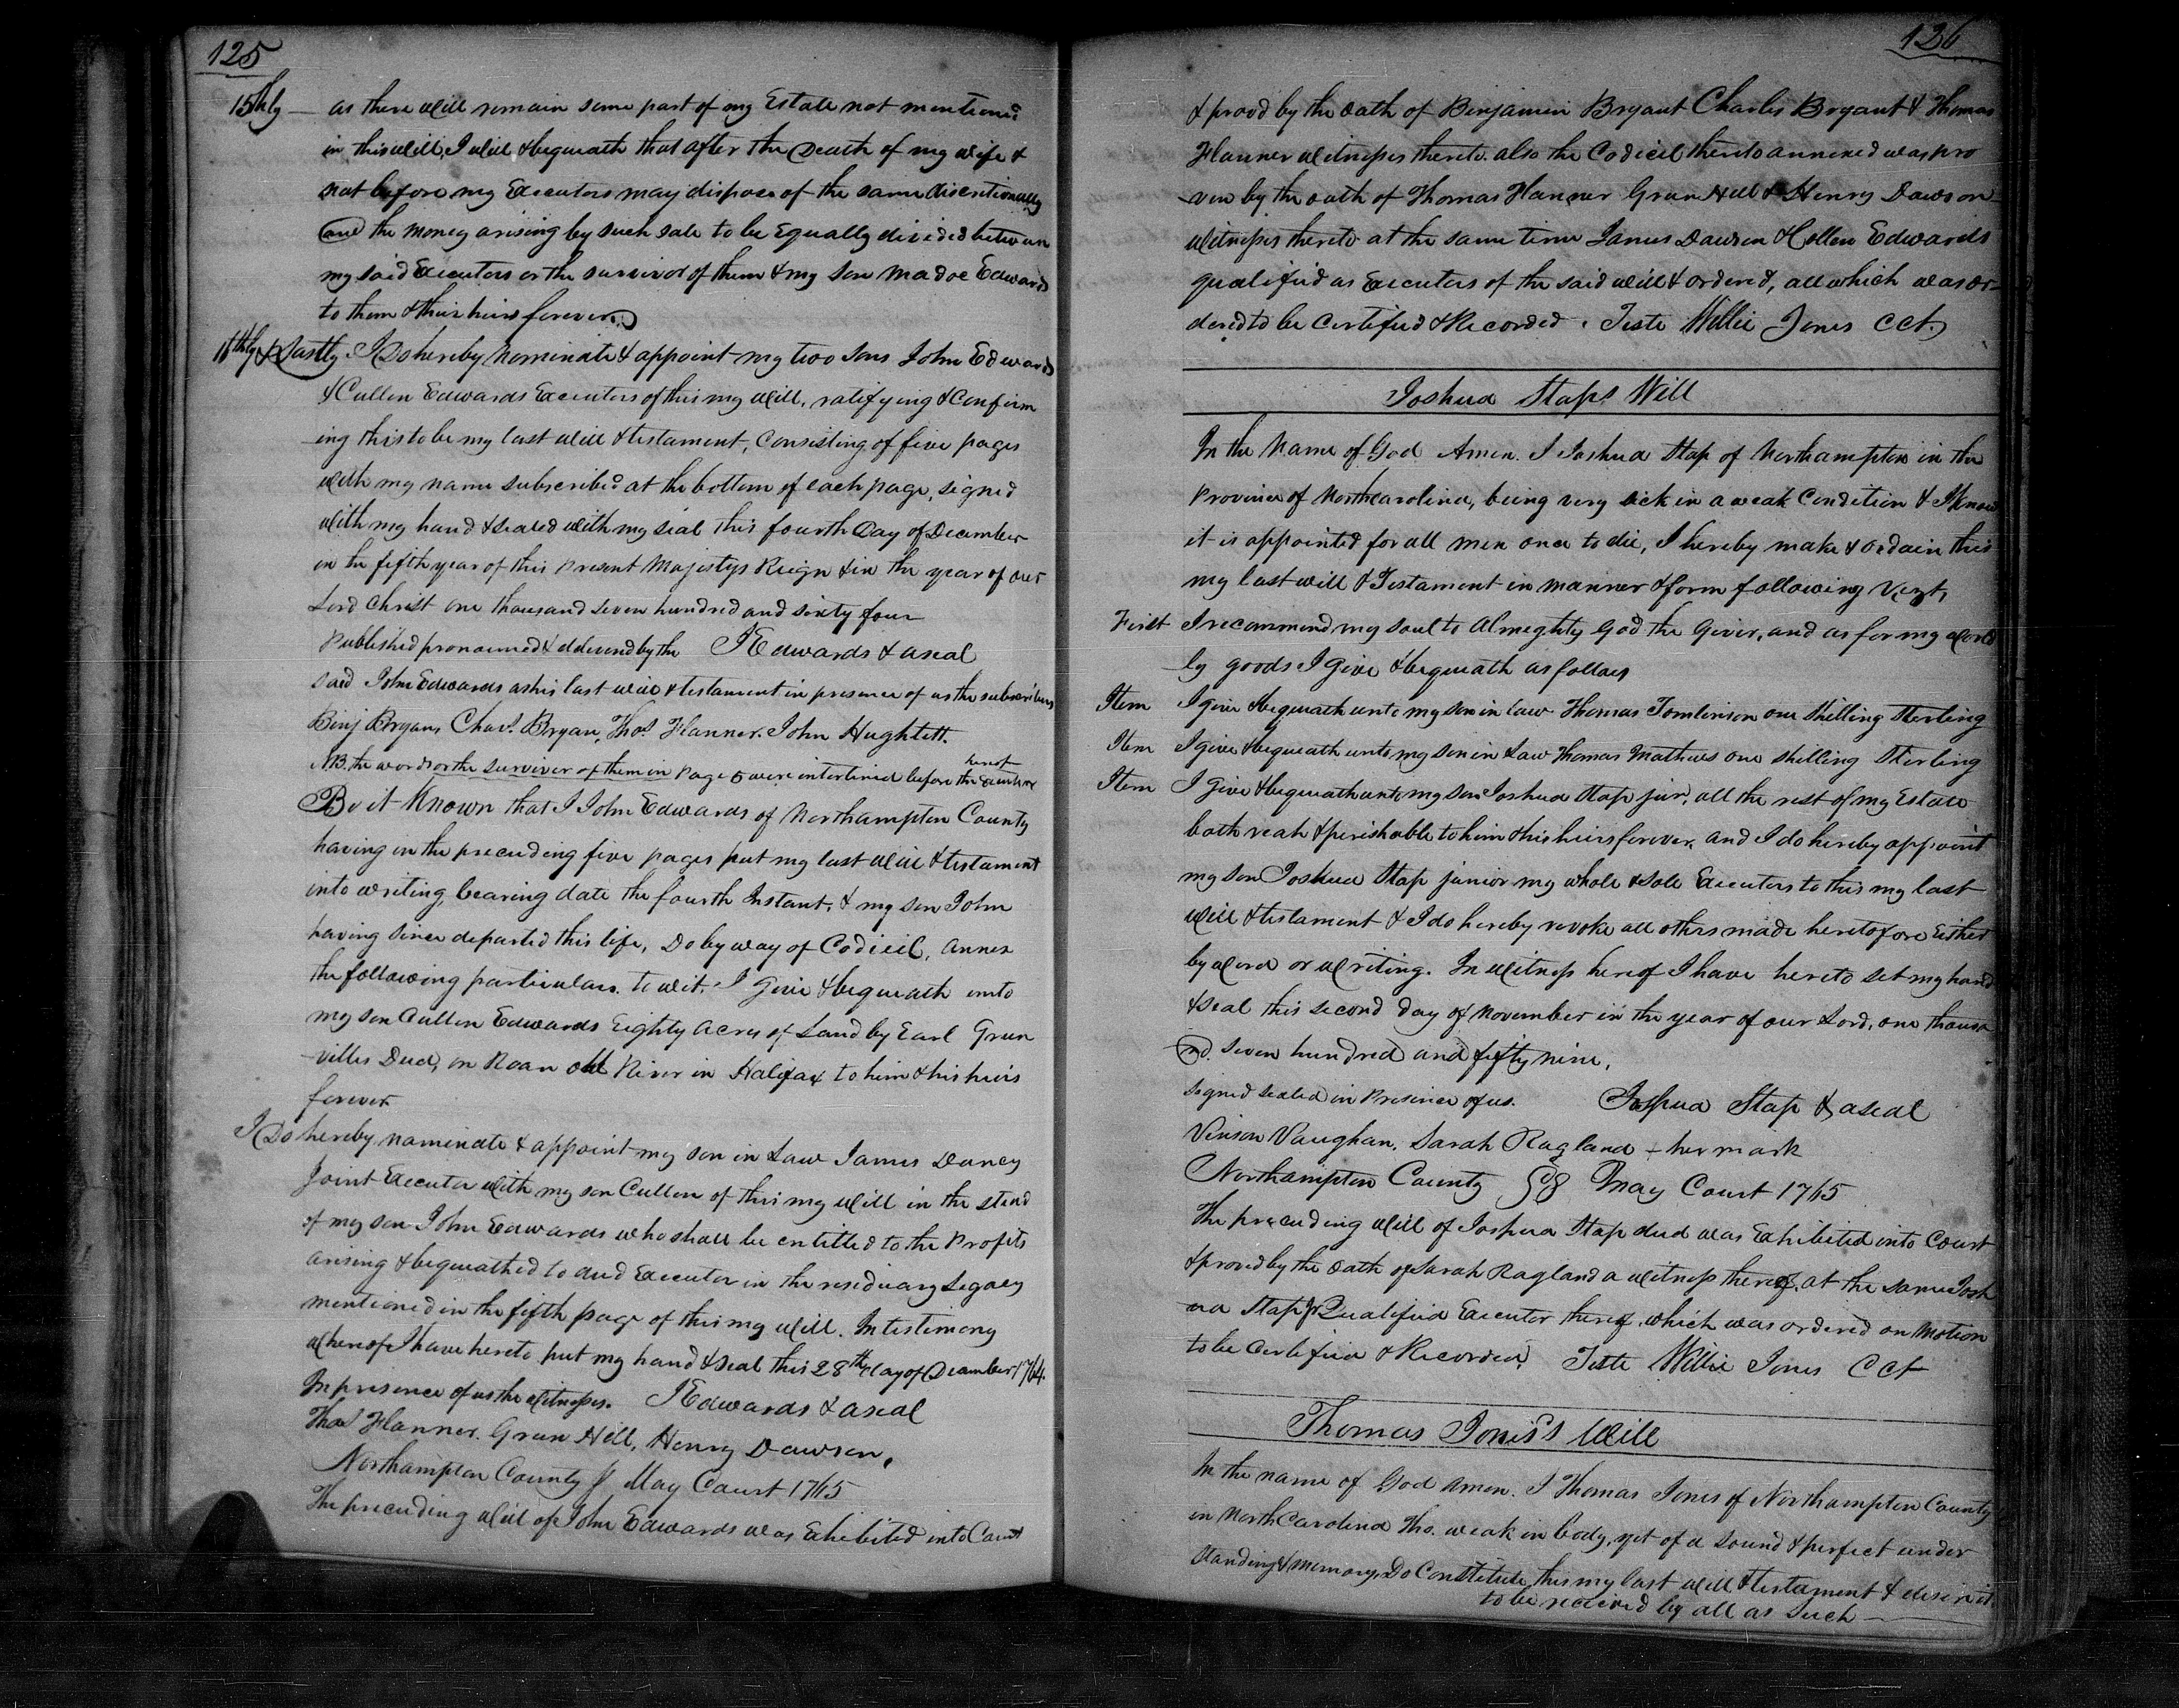 125
15thly — as there will remain some part of my Estate not mentioned
in this Will, I will & bequeath that after the Death of my wife &
not before my Executors may dispose of the same discretionally
and the money arising by such sale to be Equally divided between
my said Executors or the survivor of them & my son Madoc Edwards
to them & their heirs forever.
& Lastly I Do hereby Nominate & appoint my two sons John Edwards
& Cullen Edwards Executors of this my Will, ratifying & Confirm
ing this to be my last Will & testament, Consisting of five pages
with my name subscribed at the bottom of each page, signed
with my hand & sealed with my seal this fourth Day of December
in the fifth year of this Present Majestys Reign & in the year of our
Lord Christ one thousand seven hundred and sixty four
Published pronounced & delivered by the J Edwards & a seal
said John Edwards as his last will & testament in presence of us the subscribers
Binj Bryan, Chas. Bryan, Thos. Flanner. John Hughlett.
hereof
NB. the words or the surviver of them in page 5 were interlined before the
Be it Known that I John Edwards of Northampton County
having in the preceeding five pages put my last Will & testament
into writing bearing date the fourth Instant, & my son John
having since departed this life, Do by way of Codicil, annex
the following particulars. to wit, I Give & bequeath unto
my son Cullen Edwards Eighty Acres of Land by Earl Gran
villes Deed, on Roan oak River in Halifax to him & his heirs
forever
I Do hereby nominate & appoint my son in Law James Dancy
Joint Executor with my son Cullen of this my Will in the stead
of my son John Edwards who shall be entitled to the Profits
arising & bequeathed to said Executor in the residuary Legacy
mentioned in the fifth page of this my Will. In testimony
whereof I have hereto put my hand & seal this 28th day of December 1764.
In presence of us the Witnesses. J Edwards & a seal
Thos Flanner. Green Hill, Henry Dawson,
Northampton County May Court 1765
The preceeding Will of John Edwards was Exhibited into Court
126
& provd by the oath of Benjamin Bryant Charles Bryant & Thomas
Flanner Witnesses thereto. also the Codicil thereto annexed was pro
ven by the oath of Thomas Flanner Green Hill & Henry Dawson
Witnesses thereto at the same time James Dawson & Cullen Edwards
qualified as Executors of the said Will & ordered, all which was or-
dered to be Certified & Recorded. Teste Willie Jones CCt
Joshua Staps Will
In the Name of God Amen. I Joshua Stap of Northampton in the
Province of Northcarolina, being very sick in a weak Condition & I know
it is appointed for all men once to die, I hereby make & ordain this
my last will & Testament in manner & form following Vizt,
First I recommend my soul to Almighty God the Giver, and as for my world
ly goods I give & bequeath as follows
Item I give & bequeath unto my son in law Thomas Tomlinson one shilling Sterling
Item I give & bequeath unto my son in Law Thomas Mathews one shilling Sterling
Item I give & bequeath unto my son Joshua Stap junr, all the rest of my Estate
both reah & perishable to him & his heirs forever. and I do hereby appoint
my son Joshua Stap junior my whole & sole Executors to this my last
will & testament & I do hereby revoke all others made heretofore Either
by Word or Writing. In Witness hereof I have hereto set my hand
& seal this second day of November in the year of our Lord, one thousa
nd. seven hundred and fifty nine,
signed sealed in Presence of us. Joshua Stap & a seal
Vinson Vaughan. Sarah Ragland + her mark
Northampton County May Court 1765
The preceeding Will of Joshua Stap decd was Exhibited into Court
& proved by the Oath of Sarah Ragland a Witness thereof, at the same Josh
ua Stap Jr Qualified Executor thereof, which was ordered on Motion
to be Certified & Recorded, Teste Willie Jones CCt
Thomas Jones's Will
In the name of God Amen. I Thomas Jones of Northampton County
in North Carolina Tho. weak in body, yet of a sound & perfect under
standing & memory, Do Constitute this my last will & testament & desire it
to be received by all as such —